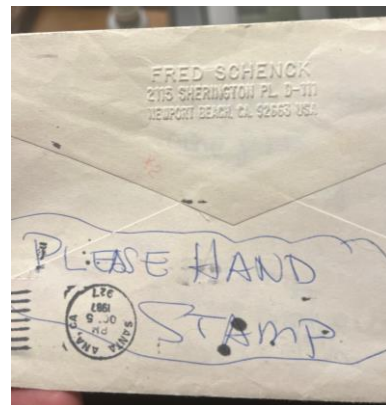 FRED SCHENCK
2115 SHERINGTON PL. D-111
NEWPORT BEACH, CA. 92663 USA
x2
PLEASE HAND
STAMP
SANTA ANA, CA
PM
OCT 5
1987
927